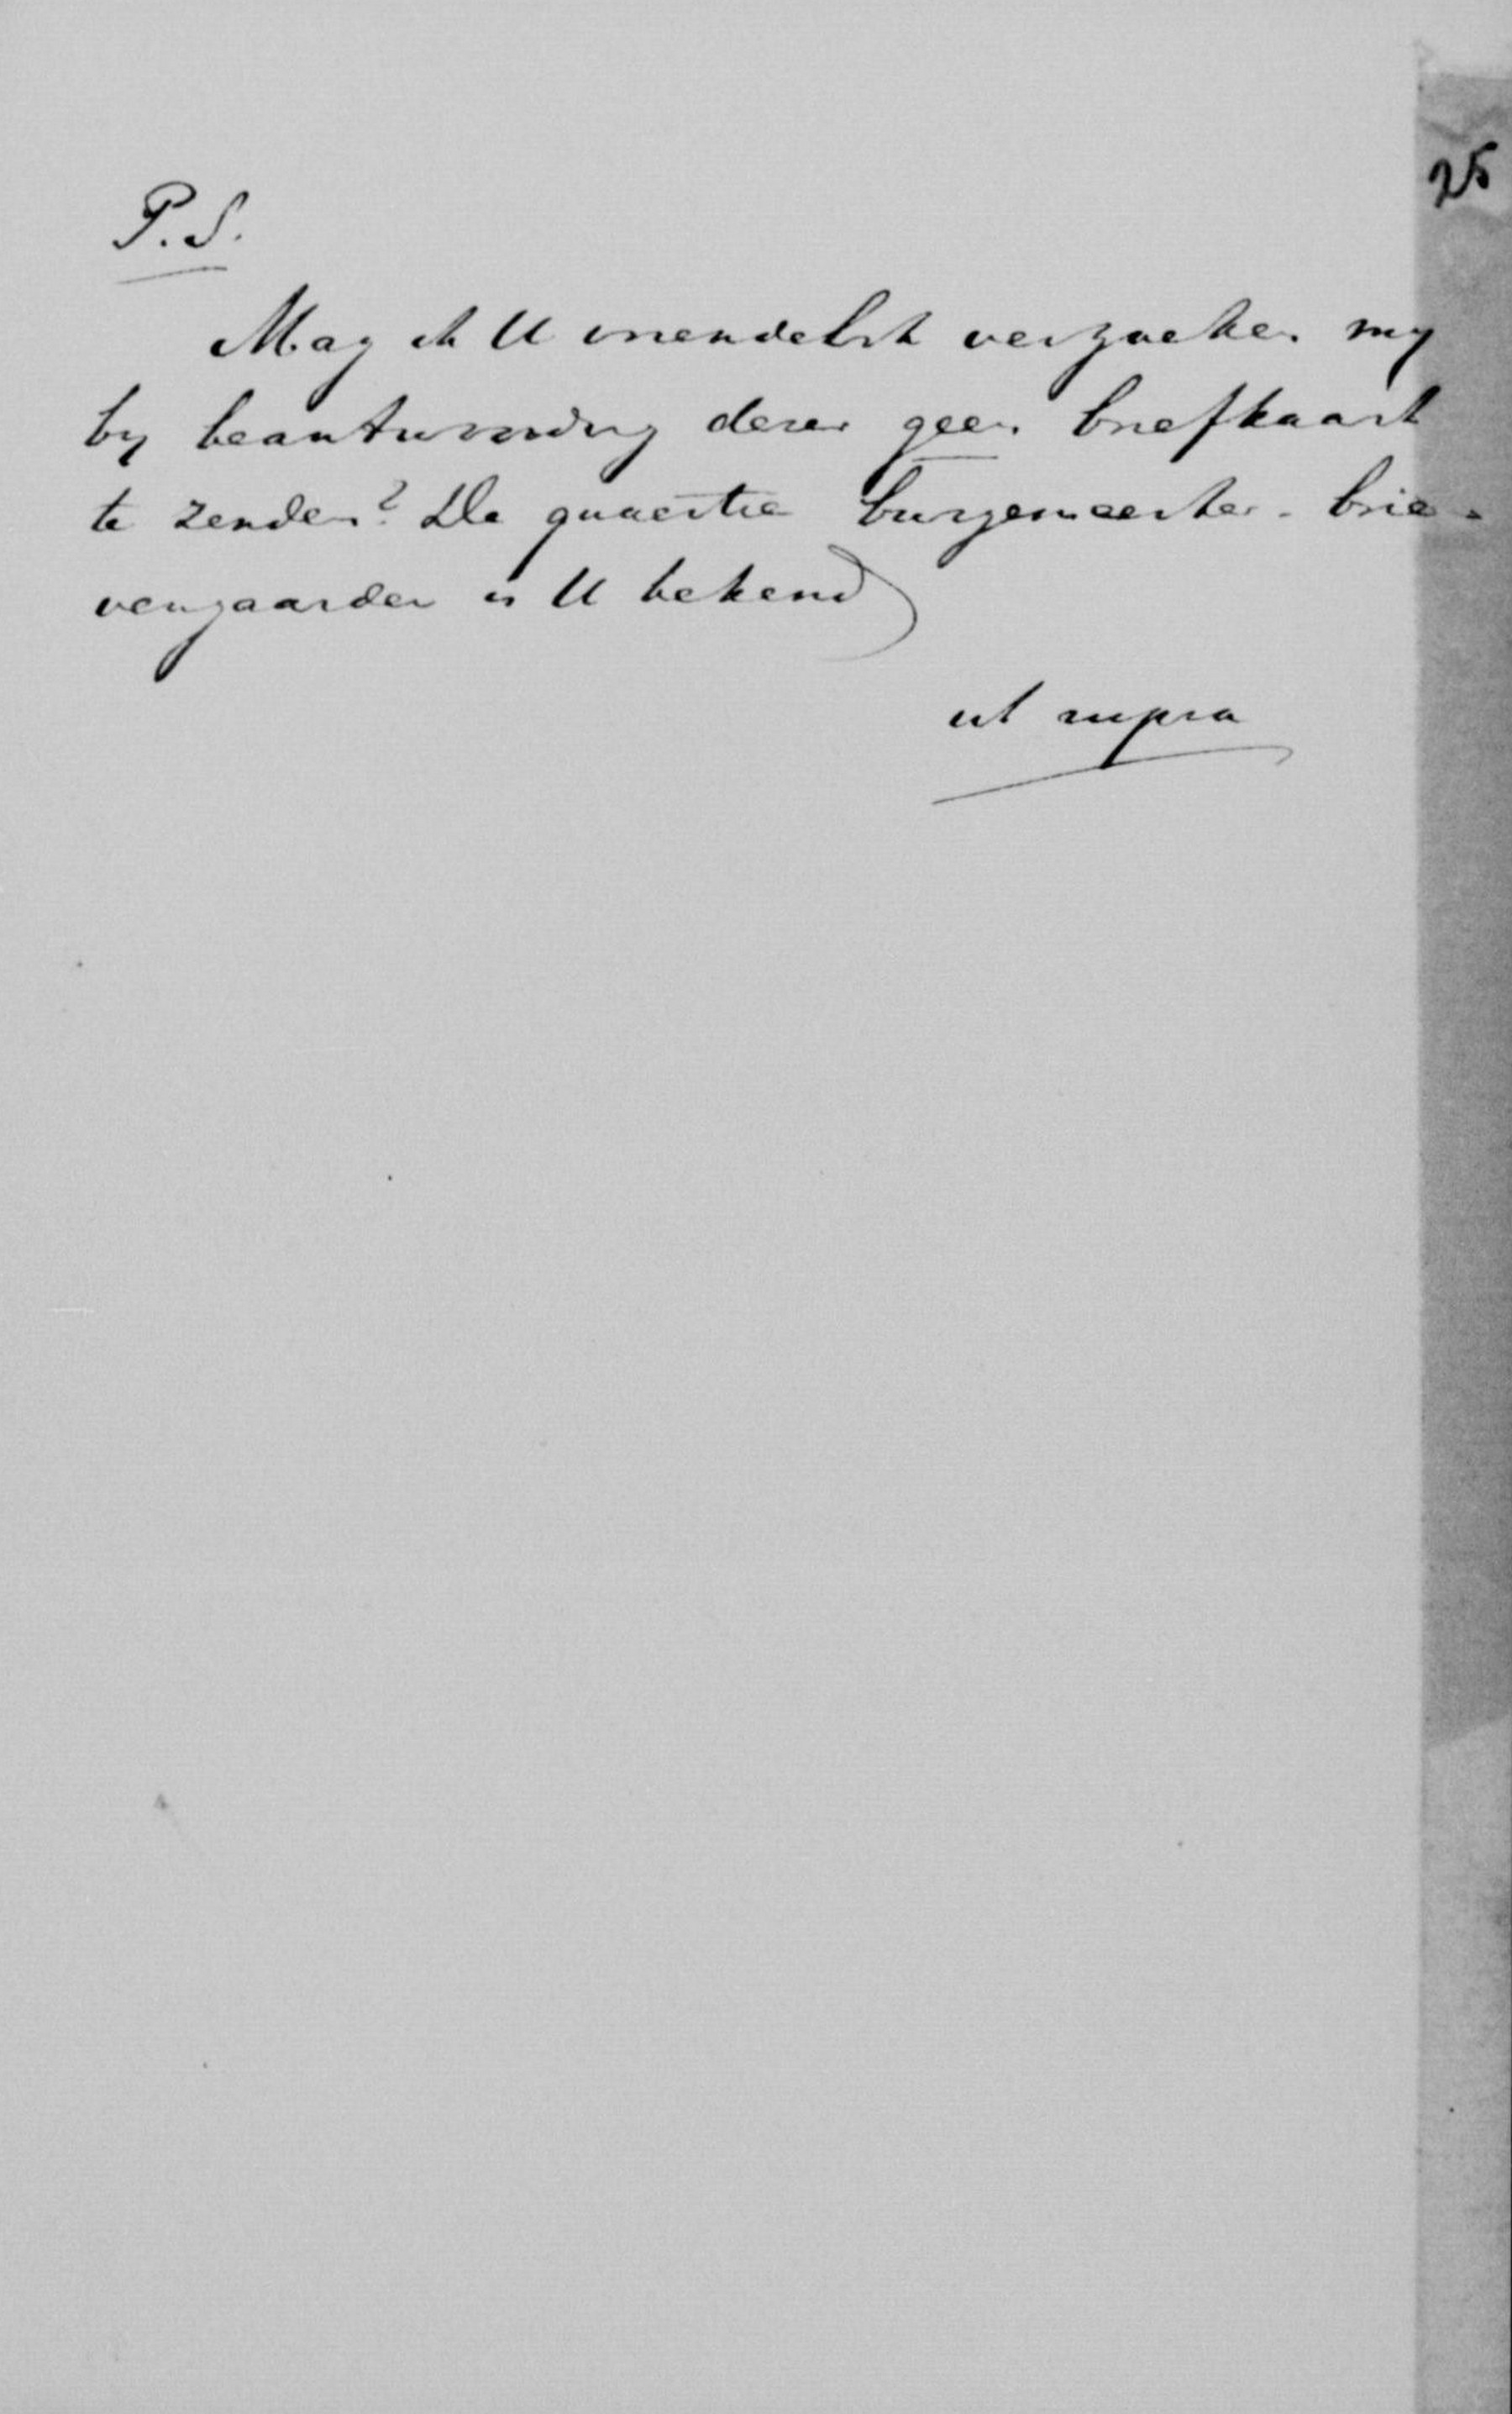 25
P.S.
Mag ik U vriendelijk verzoeken my
by beantwoording dezer geen briefkaart
te zenden? De quaestie burgemeester-brie-
vengaarder is U bekend
ut supra